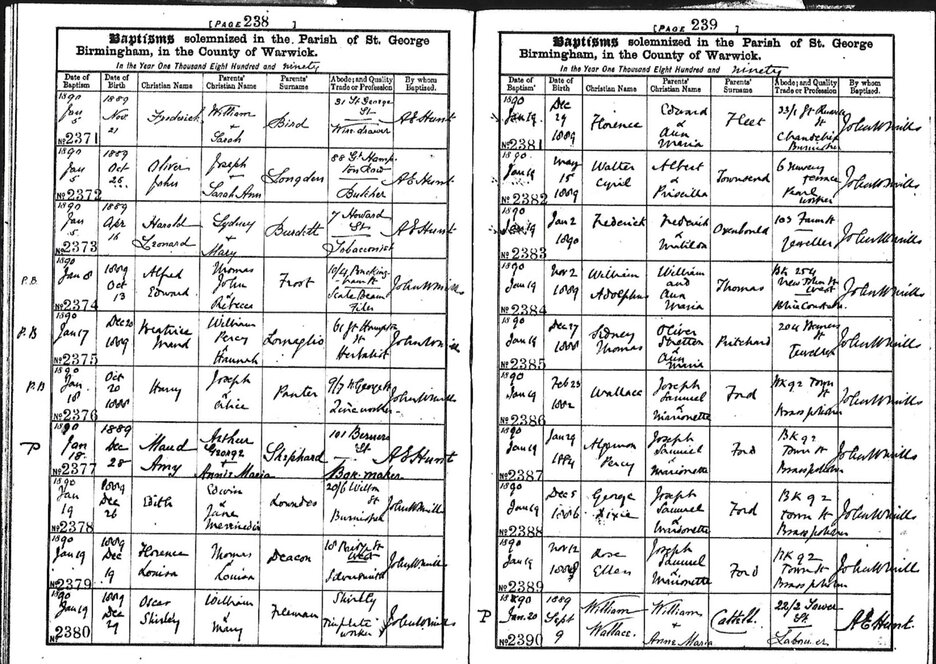 [PAGE 238 ]
Baptisms solemnized in the Parish of St. George
Birmingham, in the County of Warwick.
In the Year One Thousand Eight Hundred and ninety
Date of Baptism Date of Birth Christian Name Parents' Christian Name Parents' Surname Abode; and Quality Trade or Profession By whom Baptised.
1890 Jan 5 No 2371 1889 Nov 21 Frederick William + Sarah Bird 31 St George St Wire drawer A E Hunt
1890 Jan 5 No 2372 1889 Oct 26 Oliver John Joseph + Sarah Ann Longden 88 Gt Hampton Row Butcher A E Hunt
1890 Jan 5 No 2373 1889 Apr 16 Harold Leonard Sydney + Mary Burdett 7 Howard St Tobacconist A E Hunt
P.B 1890 Jan 8 No 2374 1889 Oct 13 Alfred Edward Thomas John & Rebecca Frost Scale Beam Filer John W Mills
P.B 1890 Jan 17 No 2375 Dec 20 1889 Beatrice Maud William Percy & Hannah 61 Gt Hampton St Herbalist
P.B 1890 Jan 18 No 2376 Oct 20 1888 Harry Joseph & Alice Panter 9/7 St George St Zinc worker John W Mills
P 1890 Jan 18. No 2377 1889 Dec 28 Maud Amy Arthur George + Annie Maria Shephard 101 Berners St Box-maker A E Hunt
1890 Jan 19 No 2378 1889 Dec 26 Edith Edwin & Jane Lowndes St Burnisher John W Mills
1890 Jan 19 No 2379 1889 Dec 19 Florence Louisa Thomas & Louisa Deacon Silversmith John W Mills
1890 Jan 19 No 2380 1889 Dec 29 Oscar Shirley William & Mary Freeman Shirley Tinplate worker John W Mills
[PAGE 239 ]
Baptisms solemnized in the Parish of St. George
Birmingham, in the County of Warwick.
In the Year One Thousand Eight Hundred and ninety
Date of Baptism Date of Birth Christian Name Parents' Christian Name Parents' Surname Abode; and Quality Trade or Profession By whom Baptised.
1890 Jan 19 No 2381 Dec 29 1889 Florence Edward & Ann Maria Fleet St Burnisher John W Mills
1890 Jan 19 No 2382 May 15 1889 Walter Cyril Albert & Priscilla Townsend 6 Terrace Pearl worker John W Mills
1890 Jan 19 No 2383 Jan 2 1890 Frederick Frederick & Matilda Oxenbould 103 Farm St Jeweller John W Mills
1890 Jan 19 No 2384 Nov 2 1889 William Adolphus William and Ann Maria Thomas New Town St West John W Mills
1890 Jan 19 No 2385 Dec 27 1888 Sidney Thomas Oliver Stretton & Ann Maria Pritchard St Jeweller John W Mills
1890 Jan 19 No 2386 Feb 23 1882 Wallace Joseph Samuel & Marionette Ford Bk 92 Town St Brass polisher John W Mills
1890 Jan 19 No 2387 Jan 29 1884 Algernon Percy Joseph Samuel & Marionette Ford BK 92 Town St Brass polisher John W Mills
1890 Jan 19 No 2388 Dec 5 1886 George Dixie Joseph Samuel & Marionette Ford BK 92 Town St Brass polisher John W Mills
1890 Jan 19 No 2389 Nov 12 1888 Rose Ellen Joseph Samuel & Marionette Ford BK 92 Town St Brass polisher John W Mills
P 1890 Jan. 20 No 2390 1889 Sept 9 William Wallace. William + Annie Maria Cattell. 22/2 Tower St. Labourer A E Hunt.